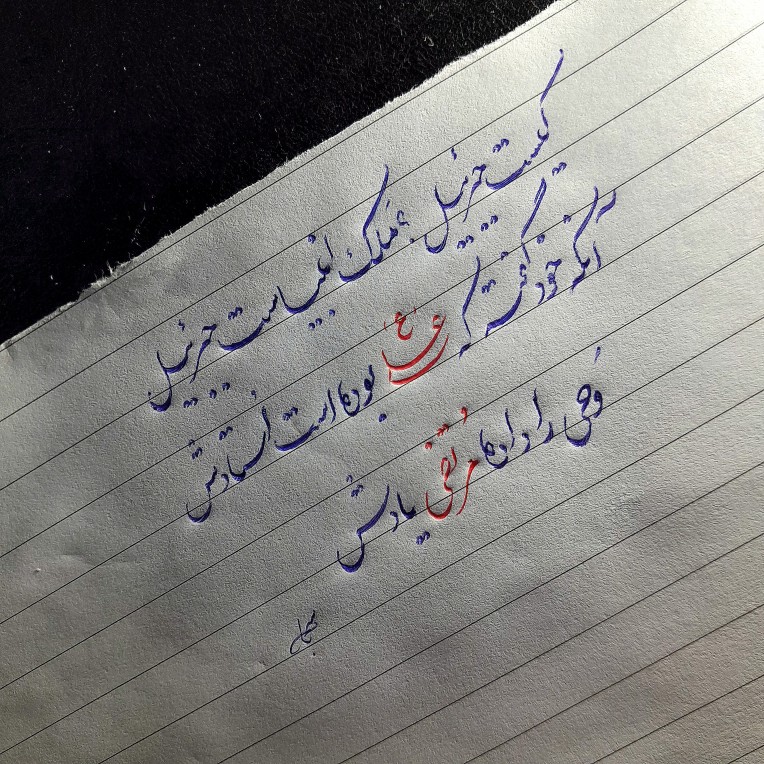 کیست جبرئیل ؟ مَلَک انبیاست جبرئیل
آنکه خود گفته که علی (ع) بوده است اُستادش
وَحی را داده مُرتضی یادش